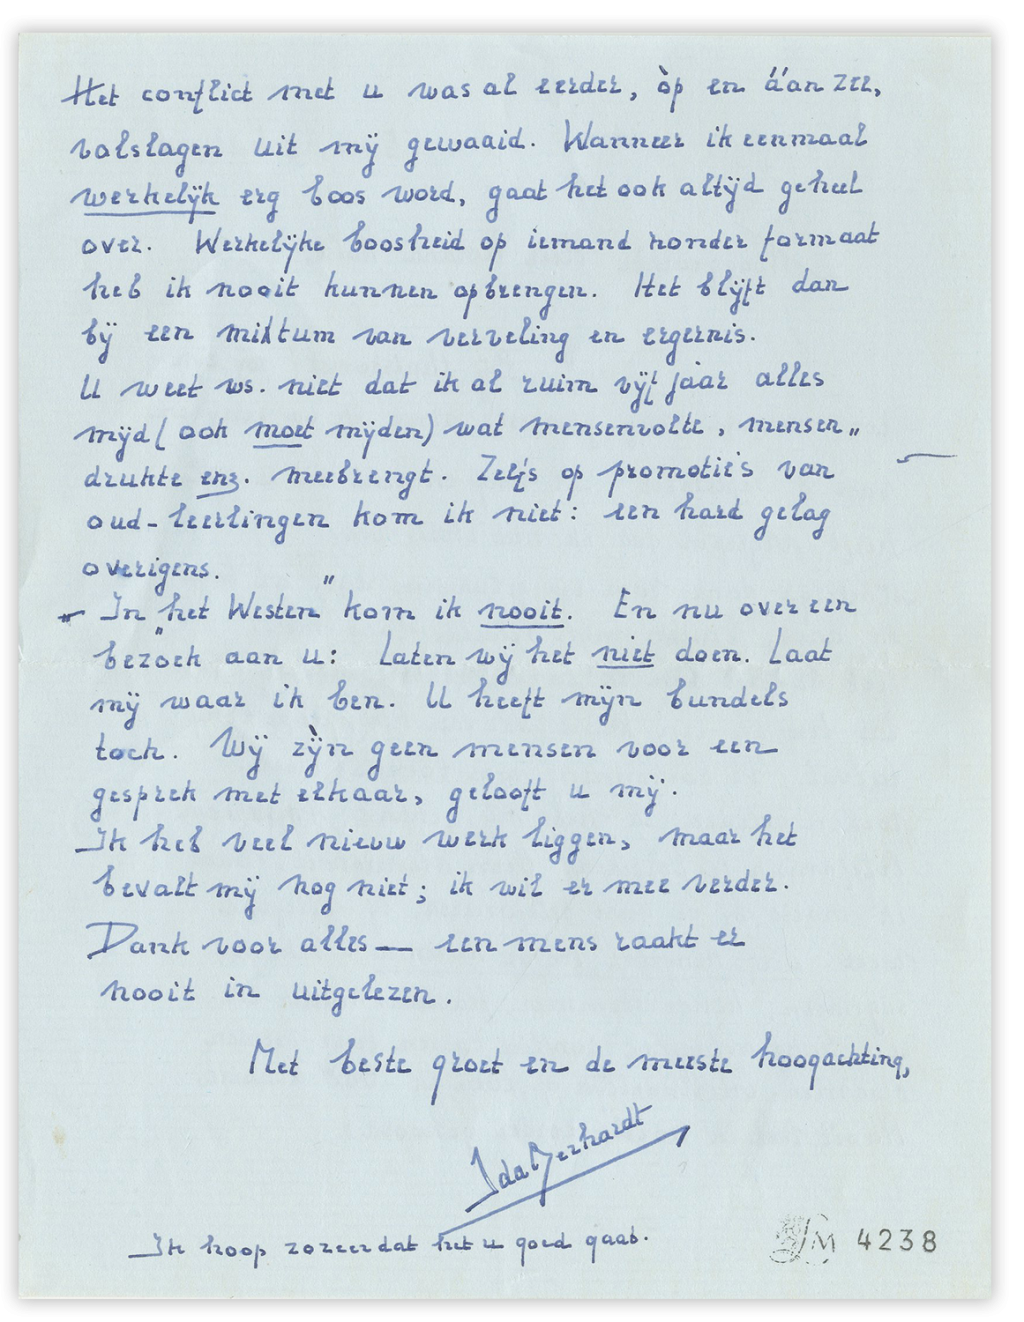 Het conflict met u was al eerder, òp en áán zee,
volslagen uit mij gewaaid. Wanneer ik eenmaal
werkelijk erg boos word, gaat het ook altijd geheel
over. Werkelijke boosheid op iemand zonder formaat
heb ik nooit kunnen opbrengen. Het blijft dan
bij een mixtum van verveling en ergernis.
U weet ws. niet dat ik al ruim vijf jaar alles
mijd (ook moet mijden) wat mensenvolte, mensen„
drukte enz. meebrengt. Zelfs op promotie's van
oud-leerlingen kom ik niet: een hard gelag
overigens.
In „het Westen" kom ik nooit. En nu over een
bezoek aan u: Laten wij het niet doen. Laat
mij waar ik ben. U heeft mijn bundels
toch. Wij zijn geen mensen voor een
gesprek met elkaar, gelooft u mij.
Ik heb veel nieuw werk liggen, maar het
bevalt mij nog niet; ik wil er mee verder.
Dank voor alles — een mens raakt er
nooit in uitgelezen.
Met beste groet en de meeste hoogachting,
Ida Gerhardt
Ik hoop zozeer dat het u goed gaat.
LM 4238